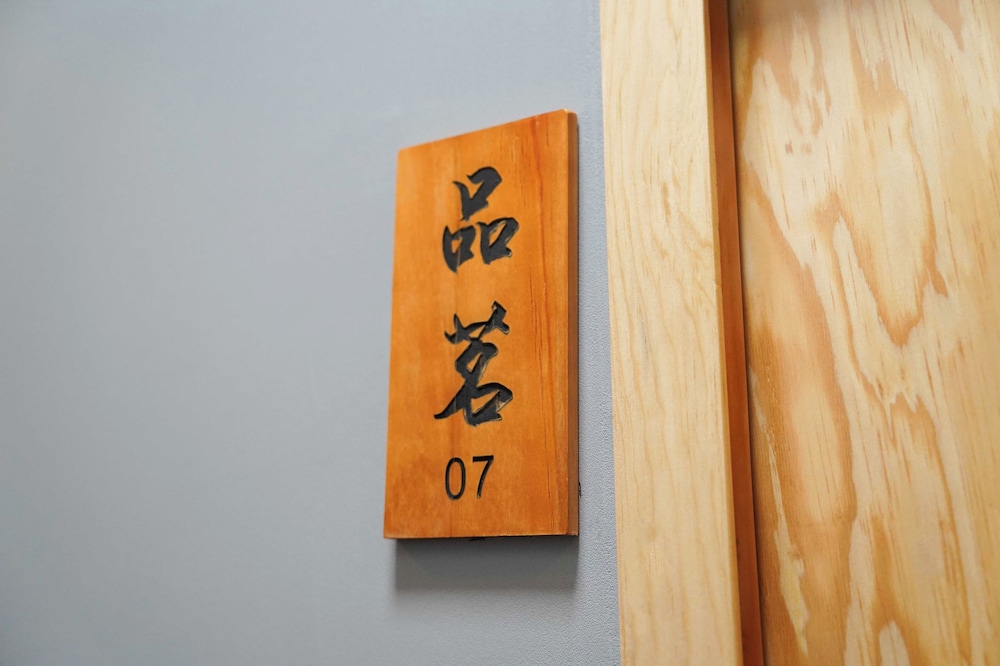 品茗
07